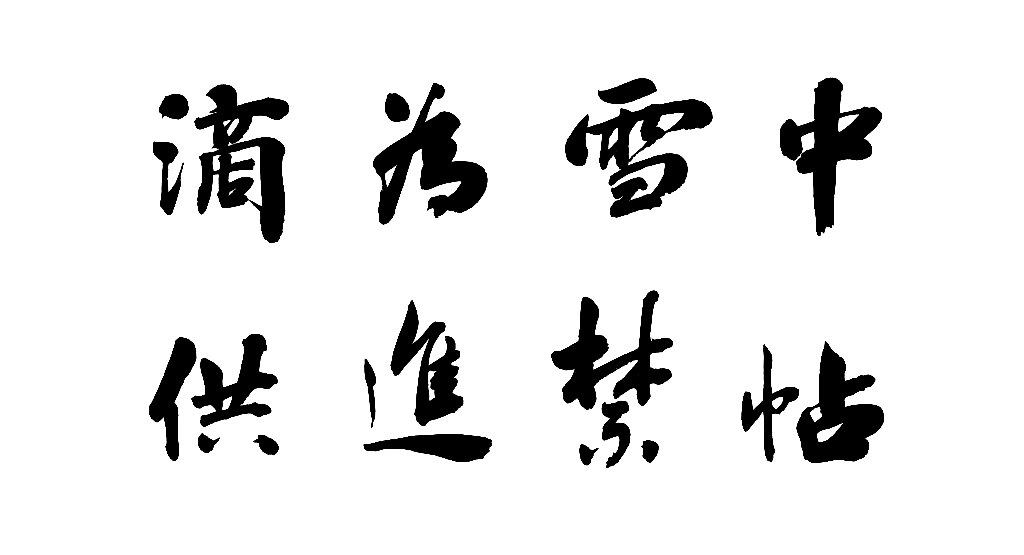 滴為雪中
供進禁帖